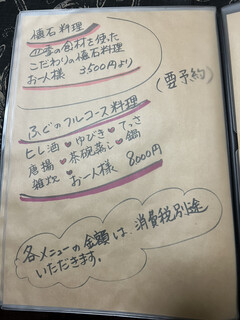 懐石料理
四季の食材を使った
こだわりの懐石料理
お一人様 3500円より
(要予約)
ふぐのフルコース料理
ヒレ酒 ♥ ゆびき ♥ てっさ
唐揚 ♥ 茶碗蒸し ♥ 鍋
雑炊 ♥ お一人様 8000円
各メニューの金額は、消費税別途
いただきます。